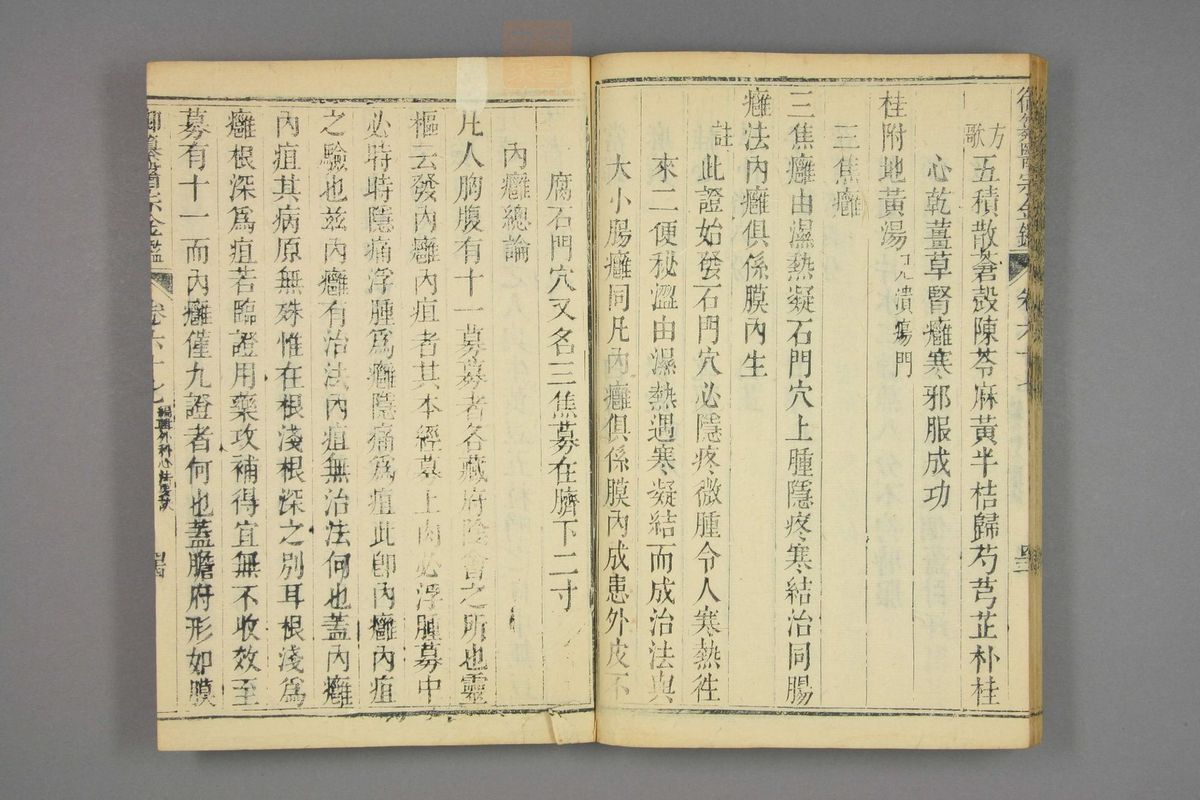 御纂醫宗金鑑 卷六十七
方歌 五積散蒼殼陳苓麻黃半桔歸芍芎芷朴桂
心乾薑草腎癰寒邪服成功
桂附地黃湯 潰瘍門
三焦癰
三焦癰由濕熱凝石門穴上腫隱疼寒結治同腸
癰法內癰俱係膜內生
註 此證始發石門穴必隱疼微腫令人寒熱徃
來二便秘澀由濕熱遇寒凝結而成治法與
大小腸癰同凡內癰俱係膜內成患外皮不
腐石門穴又名三焦募在臍下二寸
內癰總論
凡人胸腹有十一募募者各藏府陰會之所也靈
樞云發內癰內疽者其本經募上肉必浮腫募中
必時時隱痛浮腫爲癰隱痛爲疽此卽內癰內疽
之驗也茲內癰有治法內疽無治法何也蓋內癰
內疽其病原無殊惟在根淺根深之別耳根淺爲
癰根深爲疽若臨證用藥攻補得宜無不收效至
募有十一而內癰僅九證者何也蓋膽府形如膜
御纂醫宗金鑑 卷六十七 編輯外科心法要訣